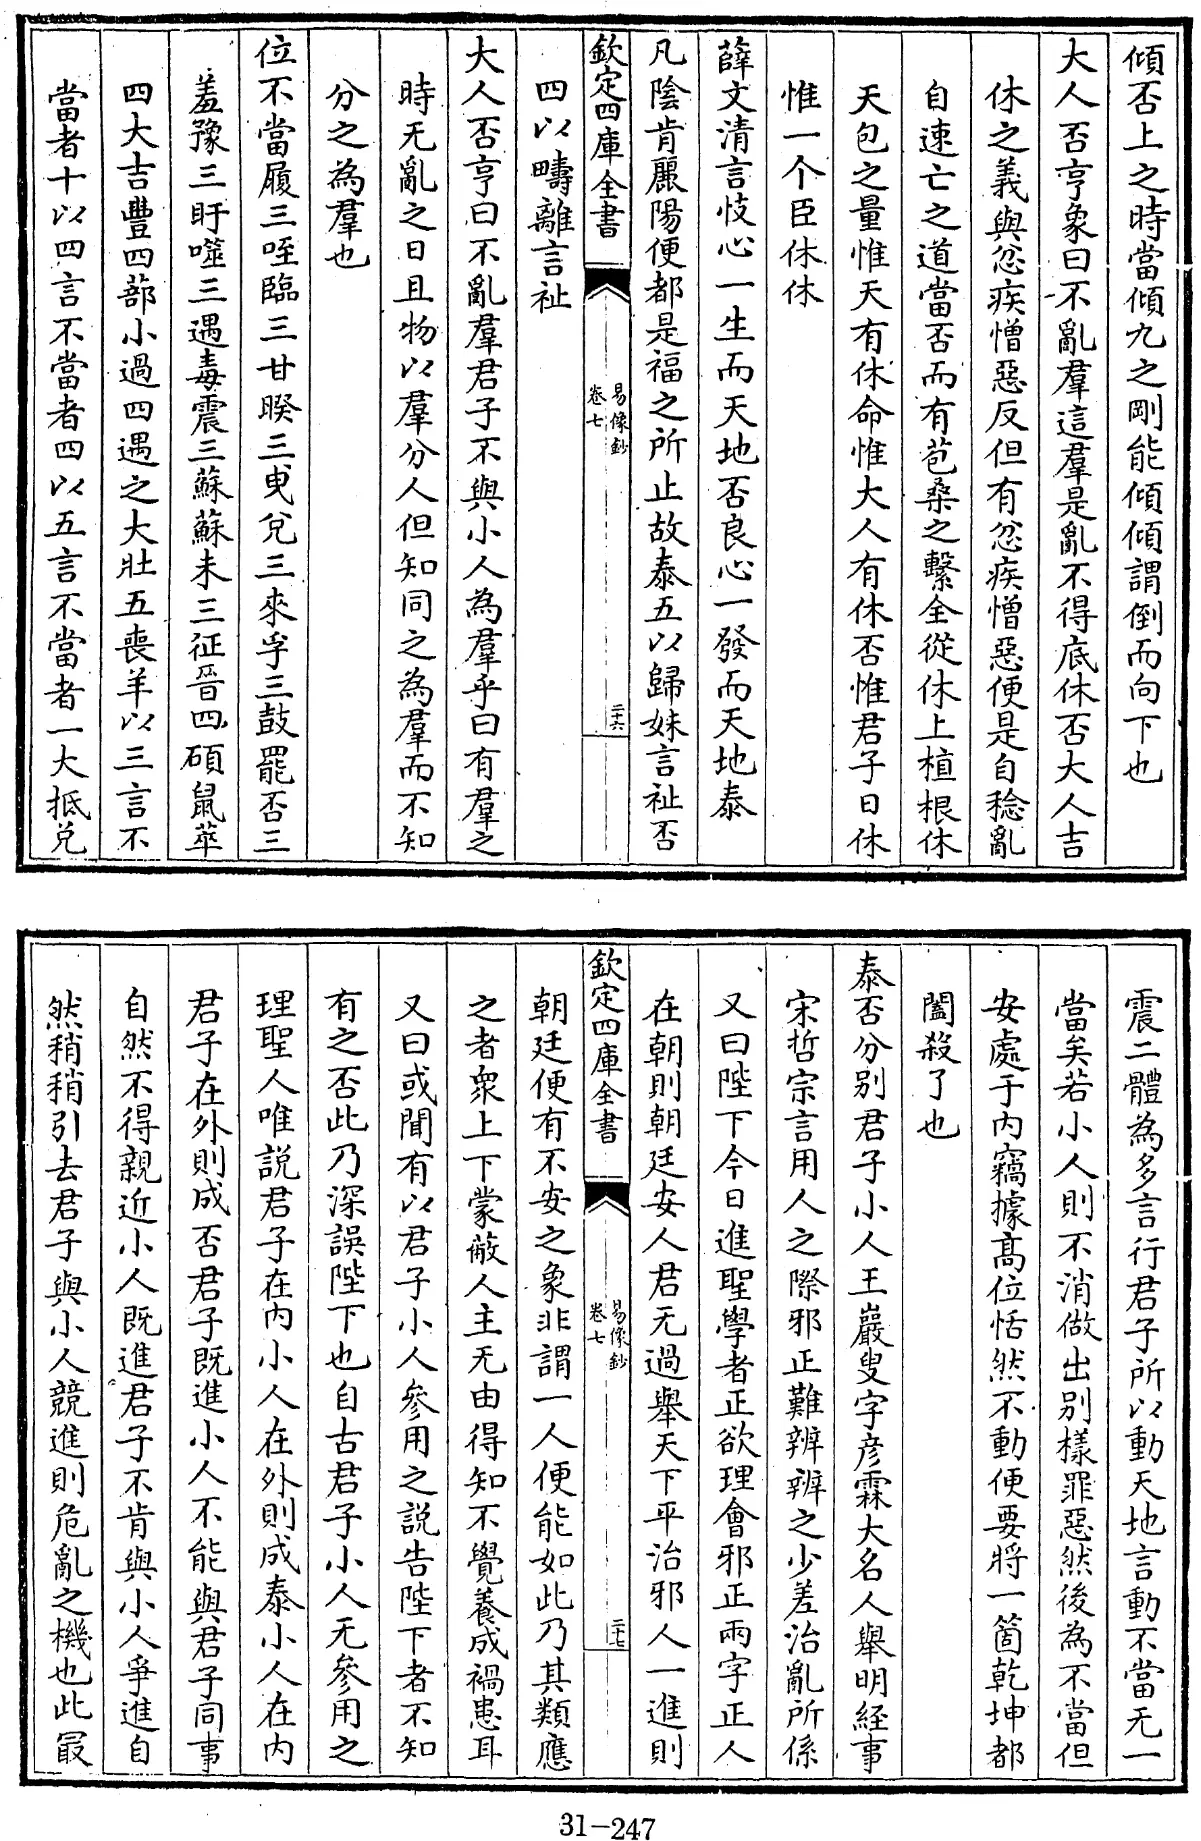 傾否上之時當傾九之剛能傾傾謂倒而向下也
大人否亨象曰不亂羣這羣是亂不得底休否大人吉
休之義與忿疾憎惡反但有忿疾憎惡便是自稔亂
自速亡之道當否而有苞桑之繫全從休上植根休
天包之量惟天有休命惟大人有休否惟君子日休
惟一个臣休休
薛文清言忮心一生而天地否良心一發而天地泰
凡陰肯麗陽便都是福之所止故泰五以歸妹言祉否
欽定四庫全書
易像鈔
卷七
二十六
四以疇離言祉
大人否亨曰不亂羣君子不與小人為羣乎曰有羣之
時无亂之日且物以羣分人但知同之為羣而不知
分之為羣也
位不當履三咥臨三甘睽三曳兌三來孚三鼓罷否三
羞豫三盱噬三遇毒震三蘇蘇未三征晉四碩鼠萃
四大吉豐四蔀小過四遇之大壯五喪羊以三言不
當者十以四言不當者四以五言不當者一大抵兌
震二體為多言行君子所以動天地言動不當无一
當矣若小人則不消做出別樣罪惡然後為不當但
安處于內竊據高位恬然不動便要將一箇乾坤都
闔殺了也
泰否分別君子小人王巖叟字彥霖大名人舉明經事
宋哲宗言用人之際邪正難辨辨之少差治亂所係
又曰陛下今日進聖學者正欲理會邪正兩字正人
在朝則朝廷安人君无過舉天下平治邪人一進則
欽定四庫全書
易像鈔
卷七
二十七
朝廷便有不安之象非謂一人便能如此乃其類應
之者衆上下蒙蔽人主无由得知不覺養成禍患耳
又曰或聞有以君子小人參用之說告陛下者不知
有之否此乃深誤陛下也自古君子小人无參用之
理聖人唯說君子在內小人在外則成泰小人在內
君子在外則成否君子既進小人不能與君子同事
自然不得親近小人既進君子不肯與小人爭進自
然稍稍引去君子與小人競進則危亂之機也此最
31-247